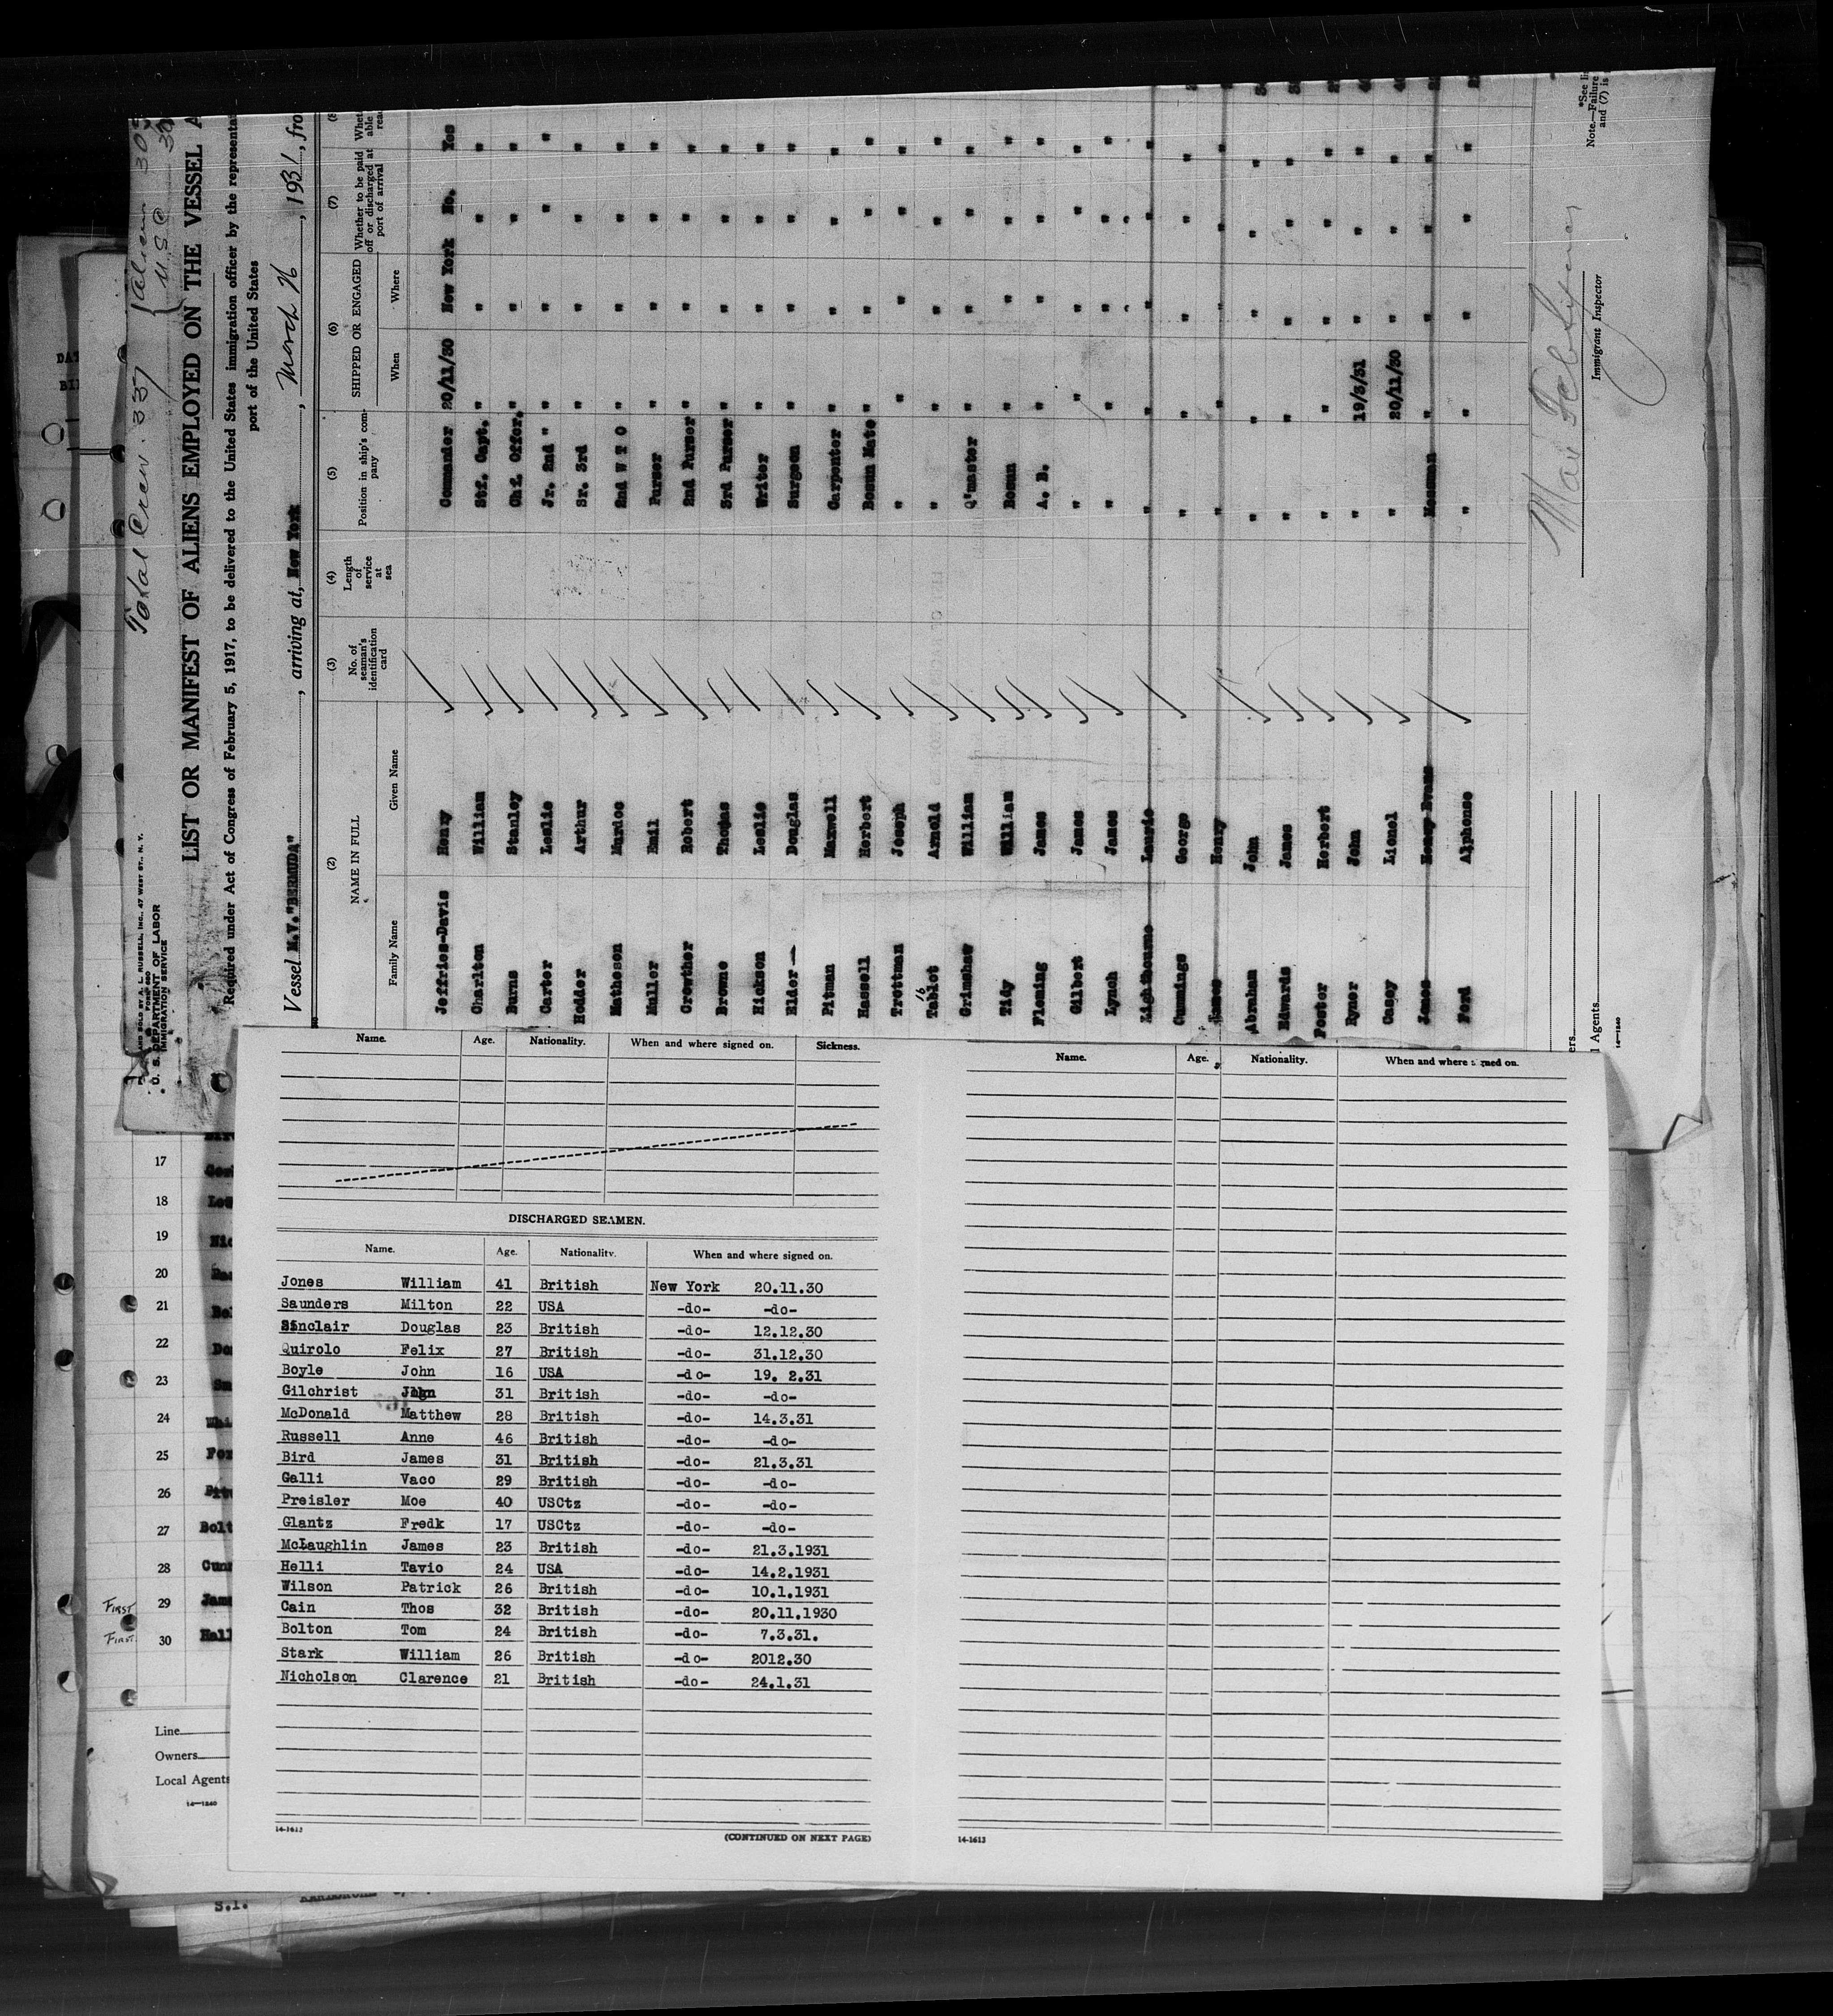 Total Crew. 337 { Aliens 303
U.S.C 34
AND SOLD BY A. L. RUSSELL, INC., 47 WEST ST., N. Y.
FORM 680
U. S. DEPARTMENT OF LABOR
IMMIGRATION SERVICE
LIST OR MANIFEST OF ALIENS EMPLOYED ON THE VESSEL A
Required under Act of Congress of February 5, 1917, to be delivered to the United States immigration officer by the representa
port of the United States
Vessel M.V."BERMUDA", arriving at, New York, March 26, 1931, fro
(2) (3) (4) (5) (6) (7) (8
NAME IN FULL No. of seaman's identification card Length of service at sea Position in ship's company SHIPPED OR ENGAGED Whether to be paid off or discharged at port of arrival Whet able rea
Family Name Given Name When Where
Jeffries-Davis Henry Commander 20/11/30 New York No. Yes
Charlton William Stf. Capt. " " " "
Burns Stanley Chf. Offcr. " " " "
Carter Leslie Jr. 2nd " " " " "
Hodder Arthur Sr. 3rd " " " "
Matheson Murdoc 2nd W T O " " " "
Muller Emil Purser " " " "
Crowther Robert 2nd Purser " " " "
Browne Thomas 3rd Purser " " " "
Hickson Leslie Writer " " " "
Elder Douglas Surgeon " " " "
Pitman Maxwell Carpenter " " " "
Hassell Herbert Bosun Mate " " " "
Trottman Joseph " " " " "
16
Tablot Arnold " " " " "
Grimshaw William Q'master " " " "
Tidy William Bosun " " " "
Fleming James A. B. " " " "
Gilbert James " " " " "
Lynch James " " " " "
Lighthourne Laurie " " " " "
Cummings George " " " " "
James Henry " " " " "
Abraham John " " " " "
Edwards James " " " " "
Foster Herbert " " " " "
Ryner John " 19/3/31 " " "
Casey Lionel " 20/11/30 " " "
Jones Henry Evans Messman " " " "
Ford Alphonse " " " " "
Immigrant Inspector
*See li
Note.—Failure
and (7) is
ers
l Agents
14—1240
Name. Age. Nationality. When and where signed on. Sickness.
DISCHARGED SEAMEN.
Name. Age. Nationality. When and where signed on.
Jones William 41 British New York 20.11.30
Saunders Milton 22 USA -do- -do-
Sinclair Douglas 23 British -do- 12.12.30
Quirolo Felix 27 British -do- 31.12.30
Boyle John 16 USA -do- 19. 2.31
Gilchrist John 31 British -do- -do-
McDonald Matthew 28 British -do- 14.3.31
Russell Anne 46 British -do- -do-
Bird James 31 British -do- 21.3.31
Galli Vaco 29 British -do- -do-
Preisler Moe 40 USCtz -do- -do-
Glantz Fredk 17 USCtz -do- -do-
McLaughlin James 23 British -do- 21.3.1931
Helli Tavio 24 USA -do- 14.2.1931
Wilson Patrick 26 British -do- 10.1.1931
Cain Thos 32 British -do- 20.11.1930
Bolton Tom 24 British -do- 7.3.31.
Stark William 26 British -do- 2012.30
Nicholson Clarence 21 British -do- 24.1.31
14-1612
(CONTINUED ON NEXT PAGE)
Name. Age. Nationality. When and where signed on.
14-1613
17
18
19
20
21
22
23
24
25
26
27 Bolt
28
FIRST 29 Jam
FIRST 30 Hall
Line
Owners
Local Agents
14—1240
S.I.